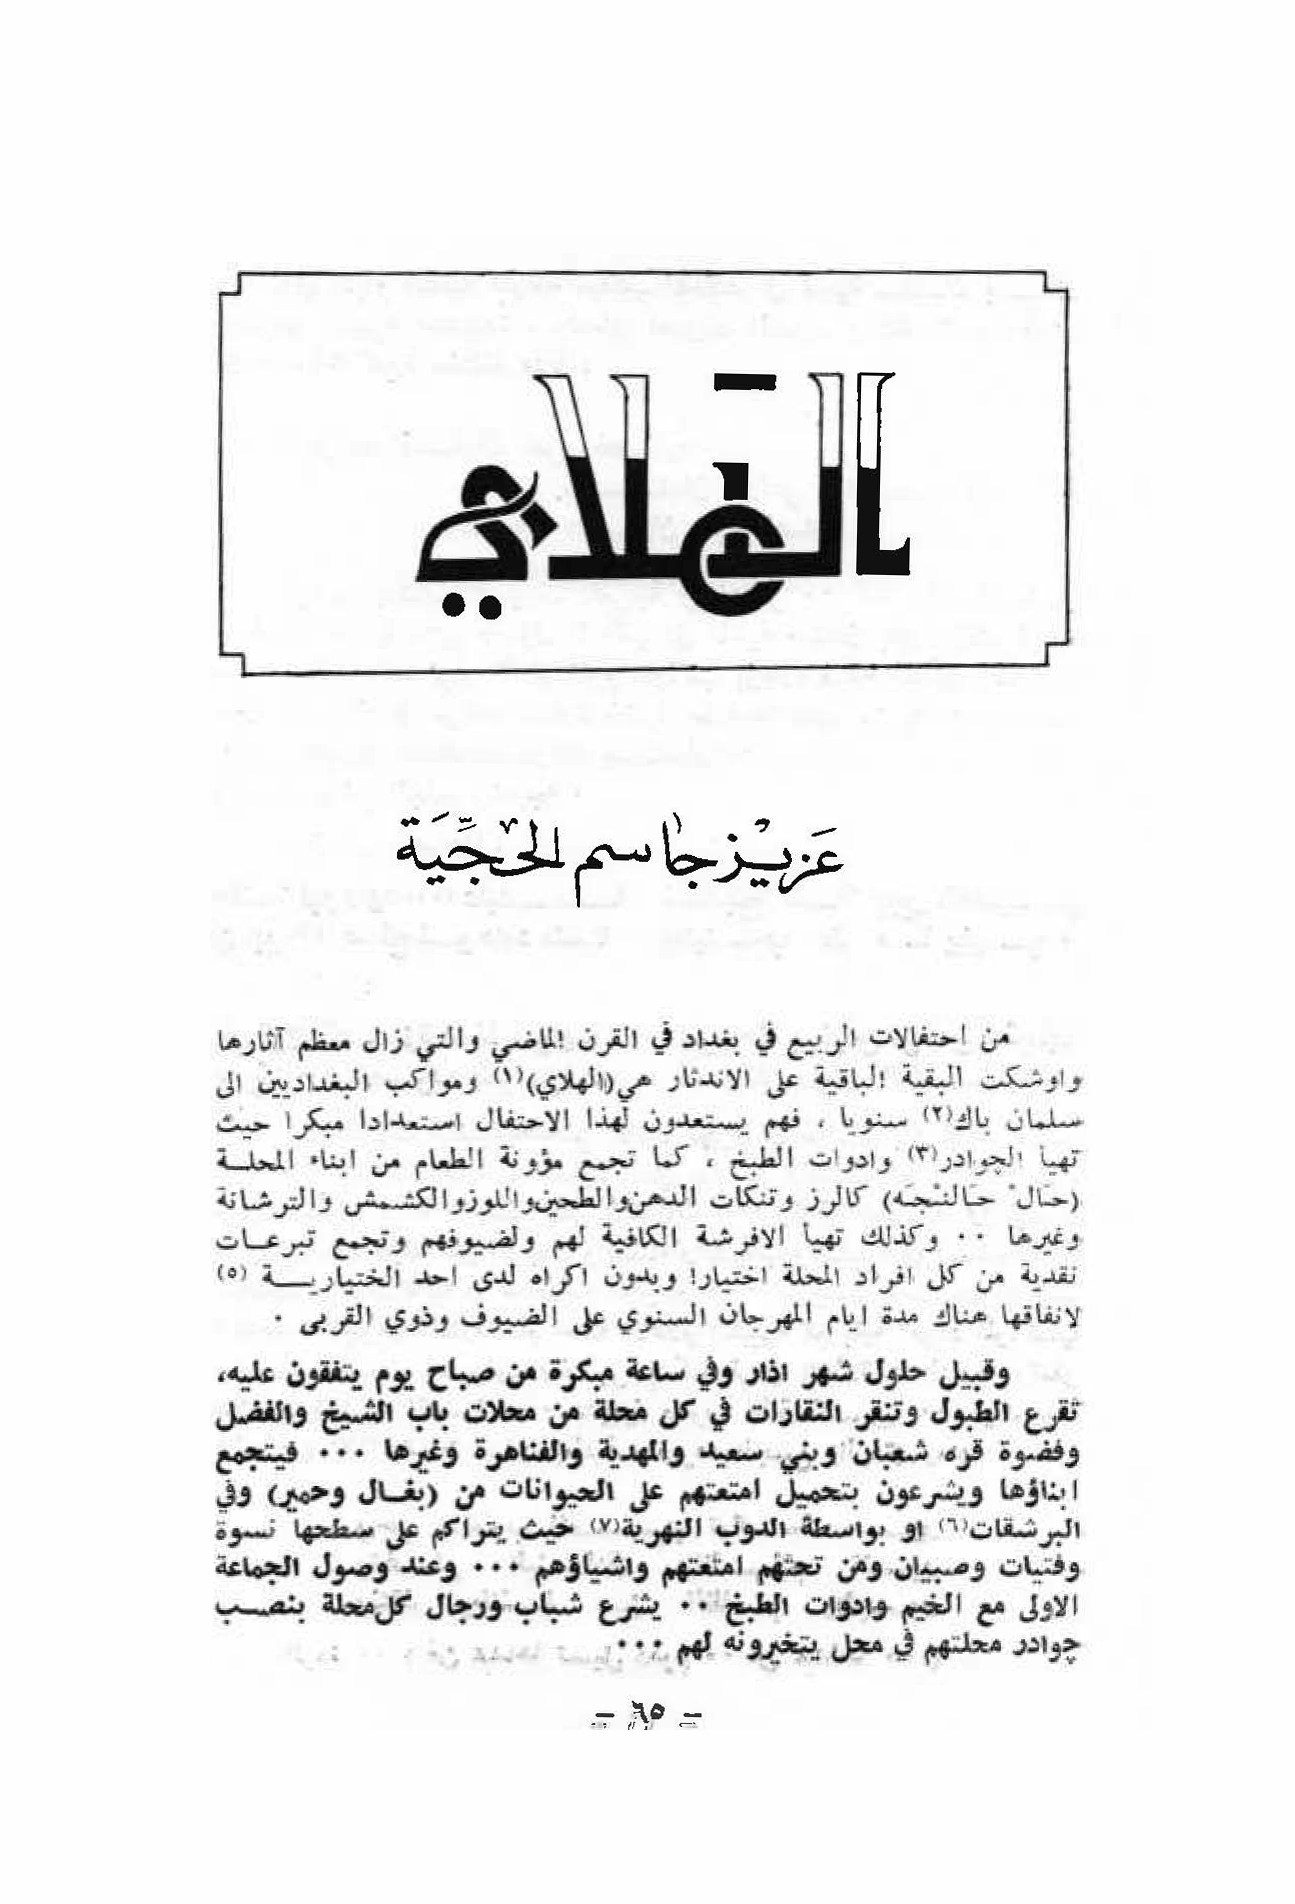 الهلاي
عزيز جاسم الحجية
من احتفالات الربيع في بغداد في القرن الماضي والتي زال معظم آثارها
واوشكت البقية الباقية على الاندثار هي (الهلاي)(١) ومواكب البغداديين الى
سلمان باك(٢) سنويا ، فهم يستعدون لهذا الاحتفال استعدادا مبكرا حيث
تهيأ الچوادر(٣) وادوات الطبخ ، كما تجمع مؤونة الطعام من ابناء المحلــة
(حال حالنجه) كالرز وتنكات الدهن والطحين واللوز والكشمش والترشانة
وغيرها ٠٠ وكذلك تهيأ الافرشة الكافية لهم ولضيوفهم وتجمع تبرعــات
نقدية من كل افراد المحلة اختيارا وبدون اكراه لدى احد الختياريــــة (٥)
لانفاقها هناك مدة ايام المهرجان السنوي على الضيوف وذوي القربى ٠
وقبيل حلول شهر اذار وفي ساعة مبكرة من صباح يوم يتفقون عليه،
تقرع الطبول وتنقر النقارات في كل محلة من محلات باب الشيخ والفضل
وفضوة قره شعبان وبني سعيد والمهدية والفناهرة وغيرها ٠٠٠ فيتجمع
ابناؤها ويشرعون بتحميل امتعتهم على الحيوانات من (بغــال وحمير) وفي
البرشقات(٦) او بواسطة الدوب النهرية(٧) حيث يتراكم على سطحها نسوة
وفتيات وصبيان ومن تحتهم امتعتهم واشياؤهم ٠٠٠ وعند وصول الجماعة
الاولى مع الخيم وادوات الطبخ ٠٠ يشرع شباب ورجال كل محلة بنصــب
چوادر محلتهم في محل يتخيرونه لهم ٠٠٠
– ٦٥ –